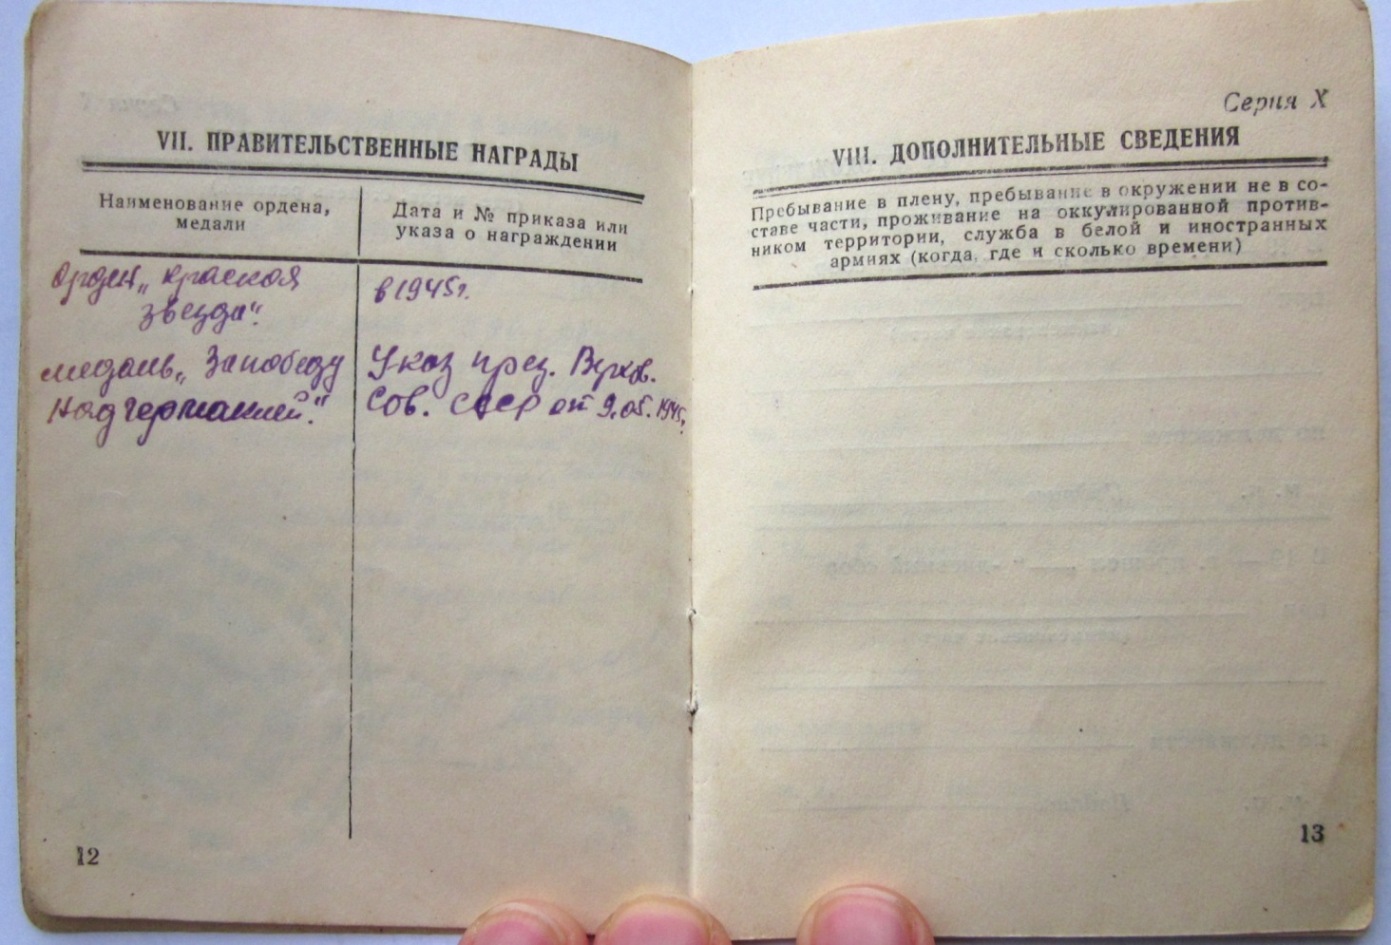 VII. ПРАВИТЕЛЬСТВЕННЫЕ НАГРАДЫ
Наименование ордена,
медали
Дата и № приказа или
указа о награждении
Орден „Красная
звезда".
в 1945 г.
медаль „За победу
над германией".
Указ през. Верхов.
Сов. СССР от 9.05.1945г.
12
Серия X
VIII. ДОПОЛНИТЕЛЬНЫЕ СВЕДЕНИЯ
Пребывание в плену, пребывание в окружении не в со-
ставе части, проживание на оккупированной против-
ником территории, служба в белой и иностранных
армиях (когда, где и сколько времени)
13